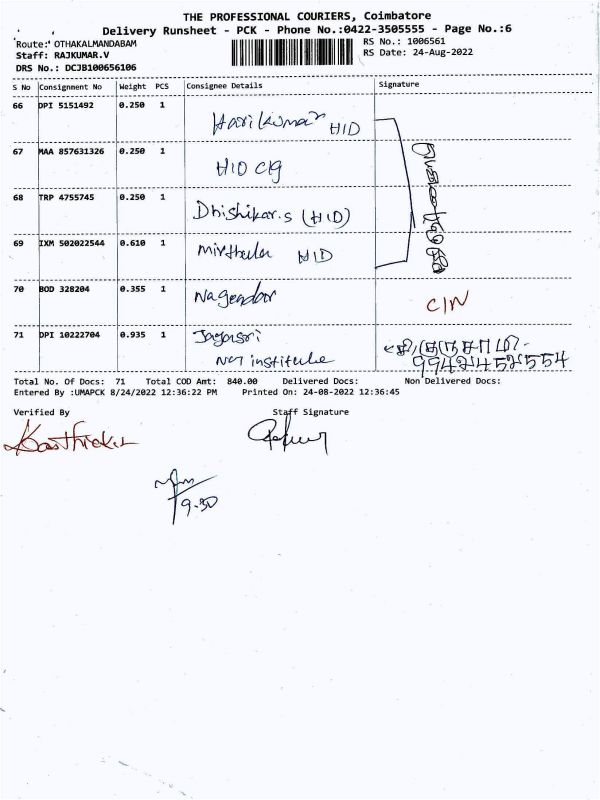 THE PROFESSIONAL COURIERS, Coimbatore
Delivery Runsheet - PCK - Phone No.:0422-3505555 - Page No.:6
Route: OTHAKALMANDABAM
RS No.: 1006561
Staff: RAJKUMAR.V
RS Date: 24-Aug-2022
DRS No.: DCJB100656106
S No Consignment No Weight PCS Consignee Details Signature
66 DPI 5151492 0.250 1
Harikumar HID
67 MAA 857631326 0.250 1
HID Clg
68 TRP 4755745 0.250 1
Dhishikar.s (HID)
69 IXM 502022544 0.610 1
Mirthula HID
70 BOD 328204 0.355 1
C/N
71 DPI 10222704 0.935 1
Jayasri
institute
9942452554
Total No. Of Docs: 71 Total COD Amt: 840.00 Delivered Docs: Non Delivered Docs:
Entered By :UMAPCK 8/24/2022 12:36:22 PM Printed On: 24-08-2022 12:36:45
Verified By Staff Signature
Karthick
9.30